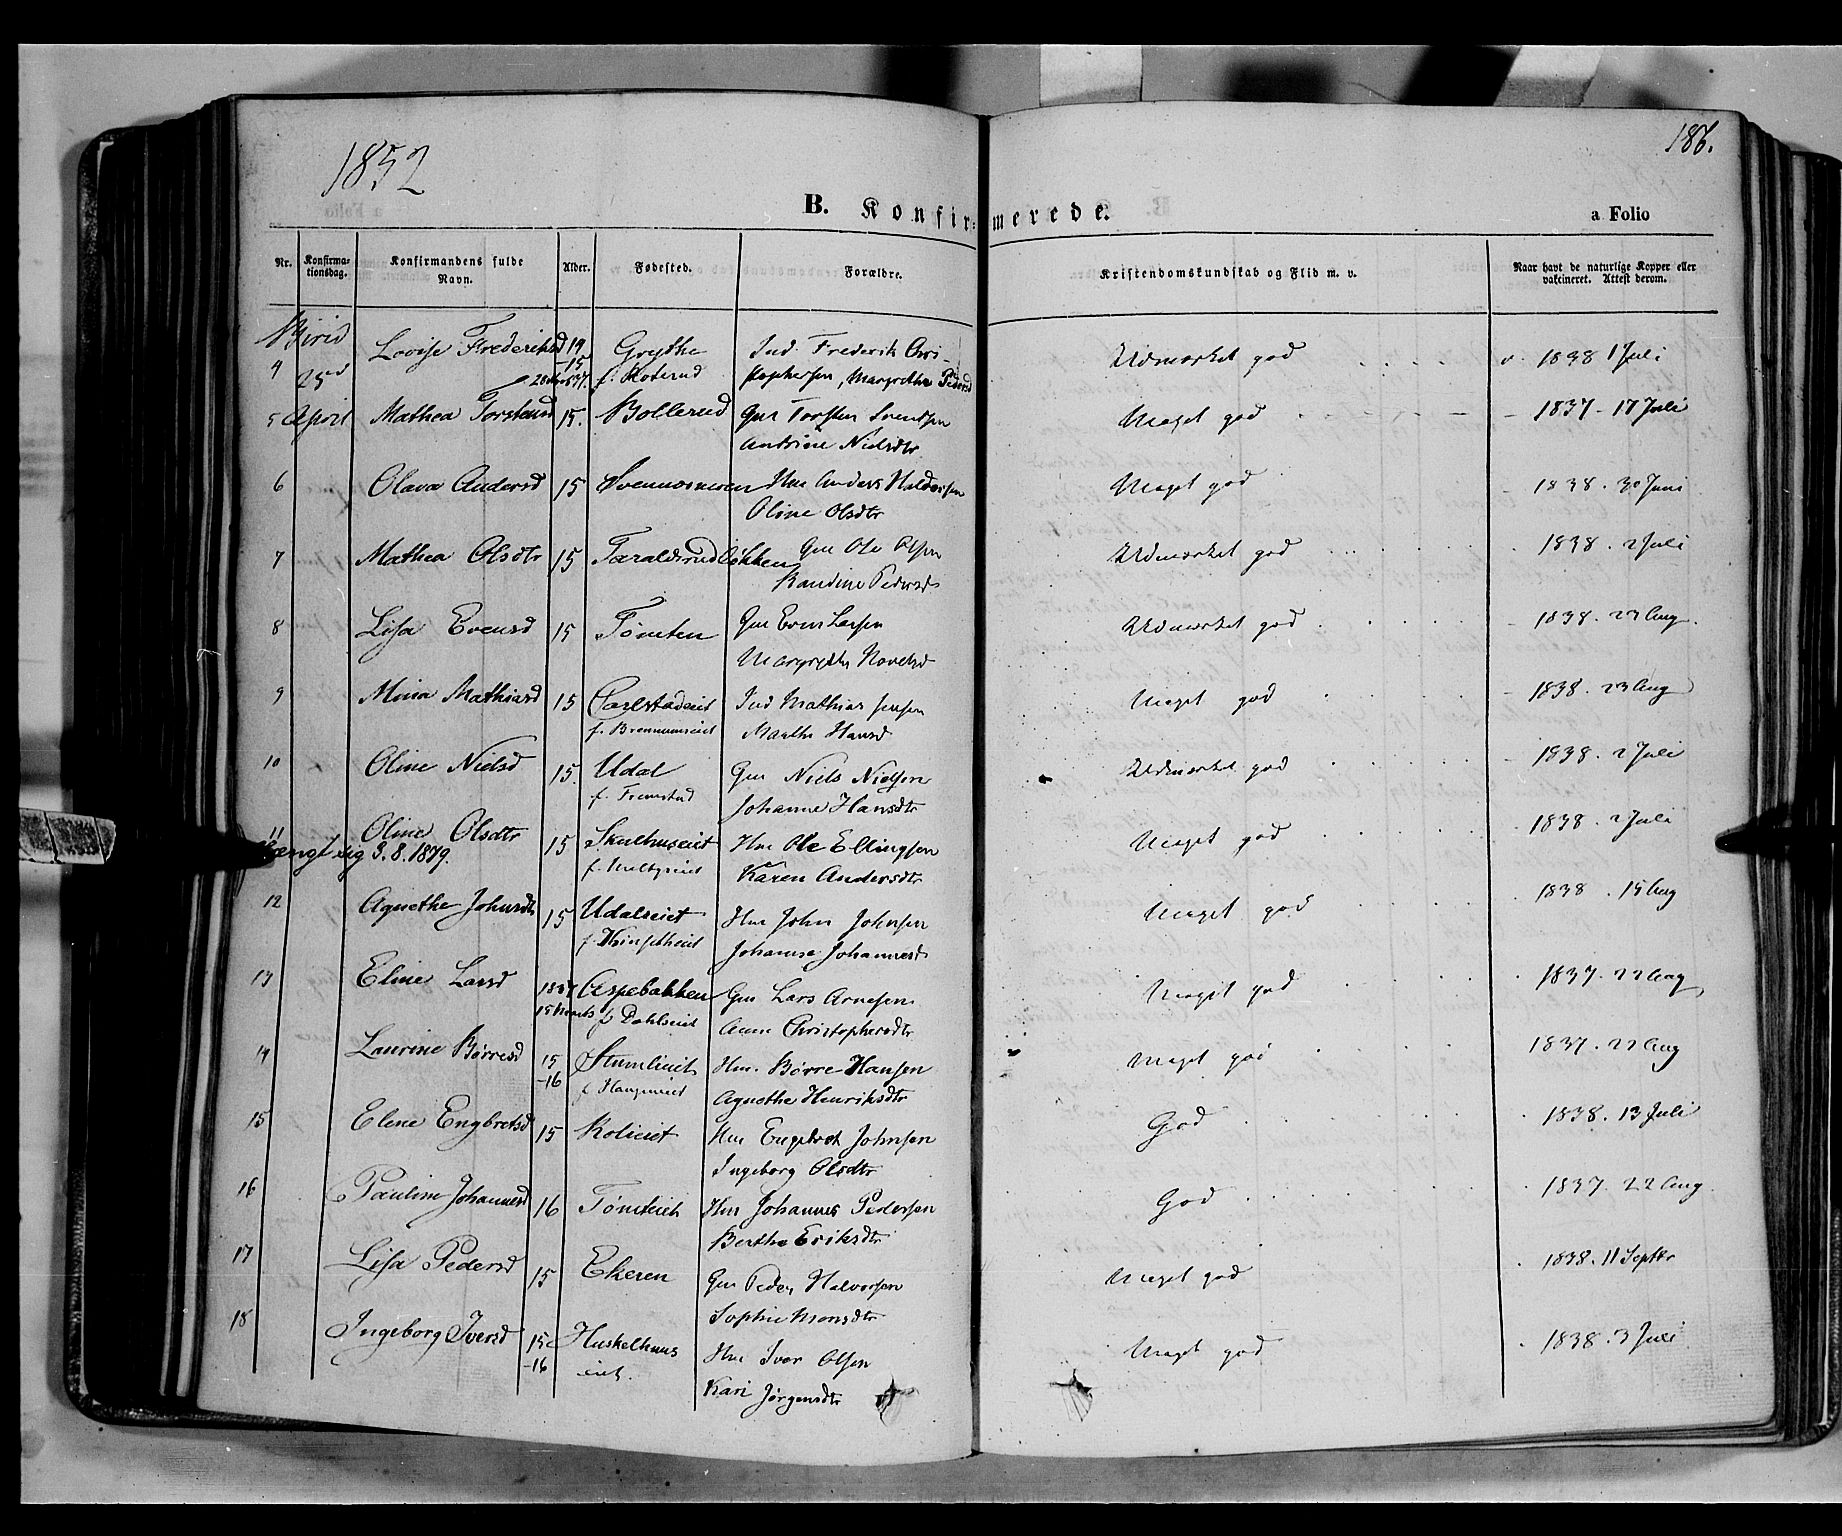 1852
186.
B. Konfirmerede.
a Folio
Nr. Konfirmationsdag. Konfirmandens fulde Navn. Alder. Fødested. Forældre. Kristendomskundskab og Flid m. v. Naar havt de naturlige Kopper eller vakcineret. Attest derom.
Birid
4 25d Lovise Frederiksd 14-15 Grythe Ind. Frederik Chri- Udmærket god v. 1838 1 Juli
f. Koterud stophersen, Margrethe Pedersd
5 April Mathea Torstensd 15. Bollerud Gm Torsten Svendsen Meget god - 1837 - 17 Juli
Andrine Nielsdtr
6 Olava Andersd 15 Hm Anders Halvorsen Meget god - 1838. 30 Juni
Oline Olsdtr
7 Mathea Olsdtr 15 Taraldsrudløkken Gm Ole Olsen Udmærket god 1838. 2 Juli
Randine Pedersd
8 Lisa Evensd 15 Tømten Gm Even Larsen Udmærket god 1838. 23 Aug.
Margrethe
9 Mina Mathiasd 15 Carlstadeiet Ind Mathias Jensen Meget god - 1838. 23 Aug
f. Brennumseiet Marthe Hansd
10 Oline Nielsd 15. Udal Gm Niels Nielsen Udmærket god - 1838. 2 Juli
f. Fremstad Johanne Hansdtr
11 Oline Olsdtr 15 Skulhuseiet Hm Ole Ellingsen Meget god 1838. 2 Juli
hengt sig 3.8.1879. Karen Andersdtr
12 Agnethe Johnsdtr 15 Udalseiet Hm John Johnsen Meget god 1838. 15 Aug
Johanne Johannesd
13 Eline Larsd 1837 Aspebakken Gm Lars Arnesen Meget god 1837. 22 Aug
f. Dahlseiet Anne Christophersdtr
14 Laurine Børresd 15 -16 Stumlieiet Hm. Børre Hansen Meget god 1837. 22 Aug
Agnethe Henriksdtr
15 Elene Engbretsd 15 Kolieiet Hm Engebret Johnsen God 1838. 13 Juli
Ingeborg Olsdtr
16 Pauline Johannesd 16 Tømteiet Hm Johannes Pedersen God 1837. 22 Aug
Berthe Eriksdtr
17 Lisa Pedersd 15 Ekeren Gm Peder Halvorsen Meget god 1838. 11 Septbr
Sophie Monsdtr
18 Ingeborg Iversd 15 -16 Huskelhuus Hm Iver Olsen Meget god 1838. 3 Juli
eiet. Kari Jørgensdtr